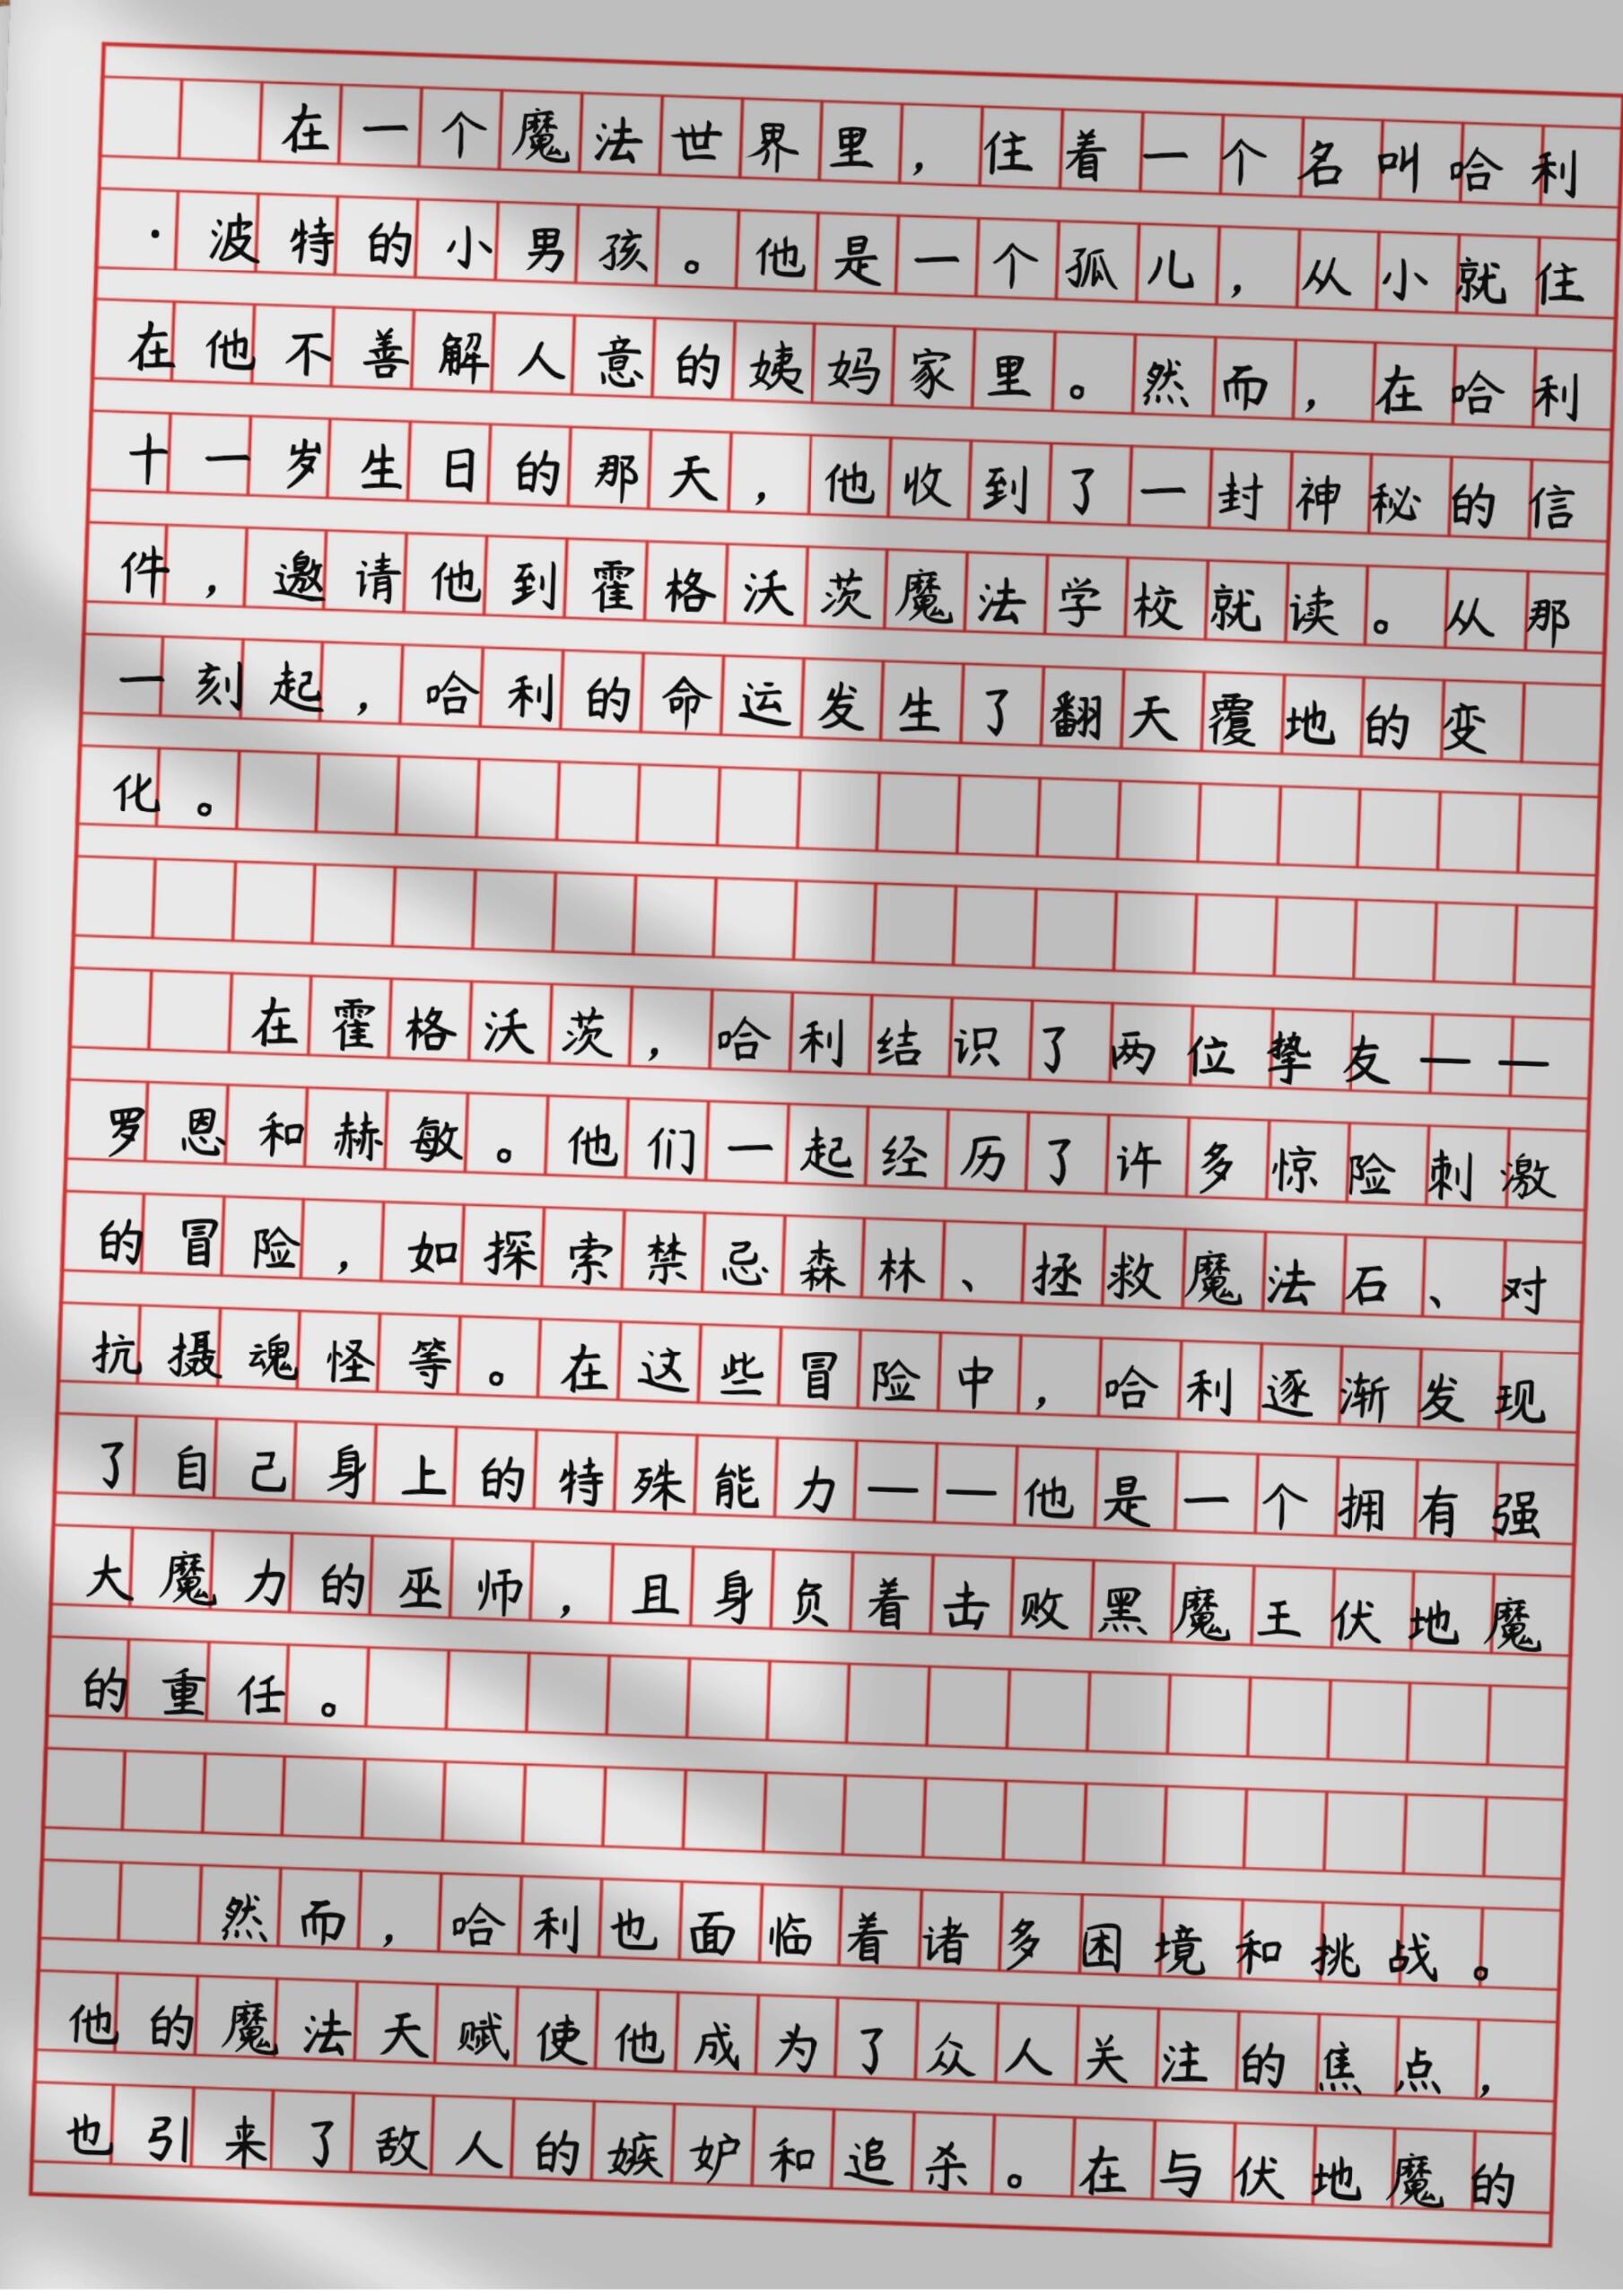 在一个魔法世界里，住着一个名叫哈利
·波特的小男孩。他是一个孤儿，从小就住
在他不善解人意的姨妈家里。然而，在哈利
十一岁生日的那天，他收到了一封神秘的信
件，邀请他到霍格沃茨魔法学校就读。从那
一刻起，哈利的命运发生了翻天覆地的变
化。
在霍格沃茨，哈利结识了两位挚友——
罗恩和赫敏。他们一起经历了许多惊险刺激
的冒险，如探索禁忌森林、拯救魔法石、对
抗摄魂怪等。在这些冒险中，哈利逐渐发现
了自己身上的特殊能力——他是一个拥有强
大魔力的巫师，且身负着击败黑魔王伏地魔
的重任。
然而，哈利也面临着诸多困境和挑战。
他的魔法天赋使他成为了众人关注的焦点，
也引来了敌人的嫉妒和追杀。在与伏地魔的